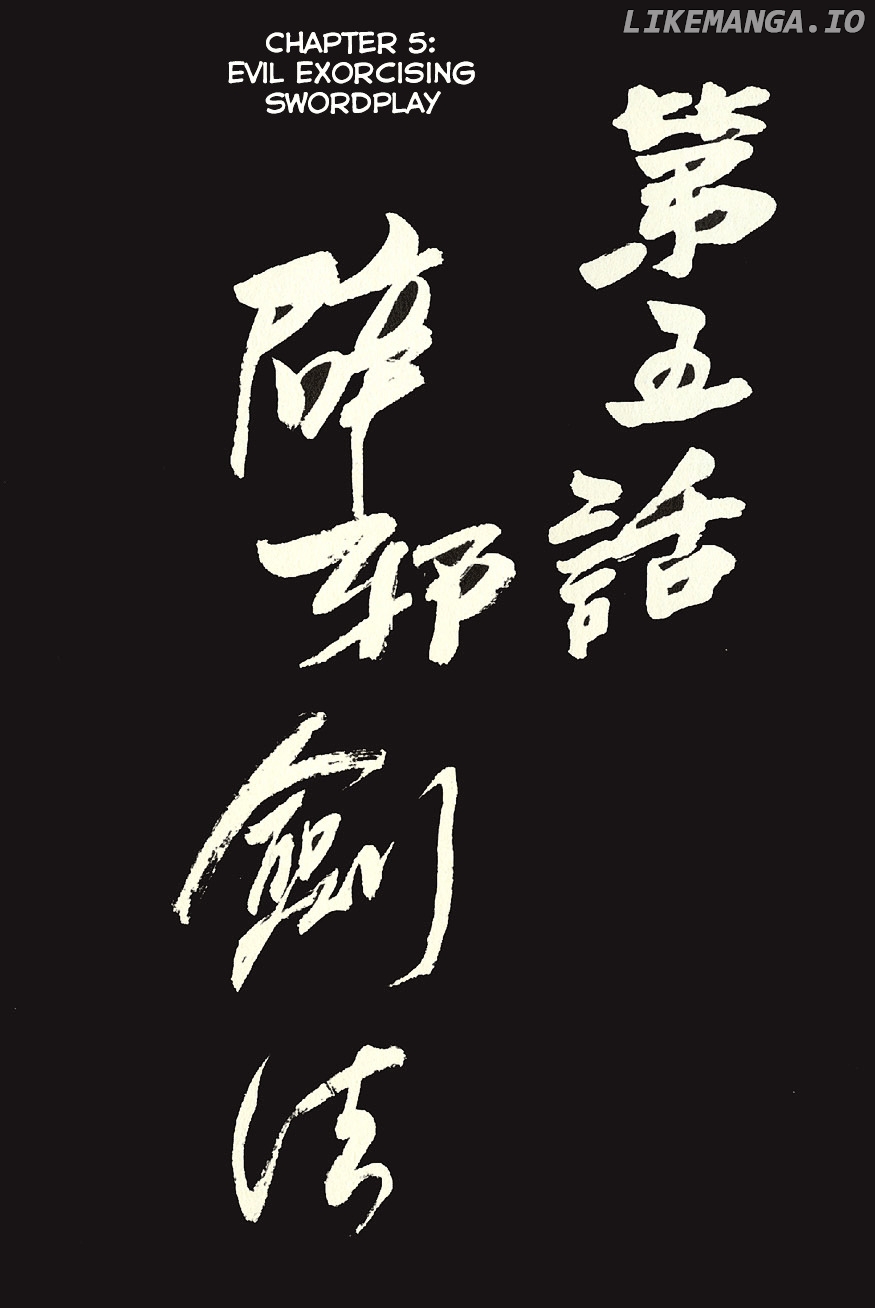 LIKEMANGA.IO
CHAPTER 5:
EVIL EXORCISING
SWORDPLAY
第五話
辟邪劍法